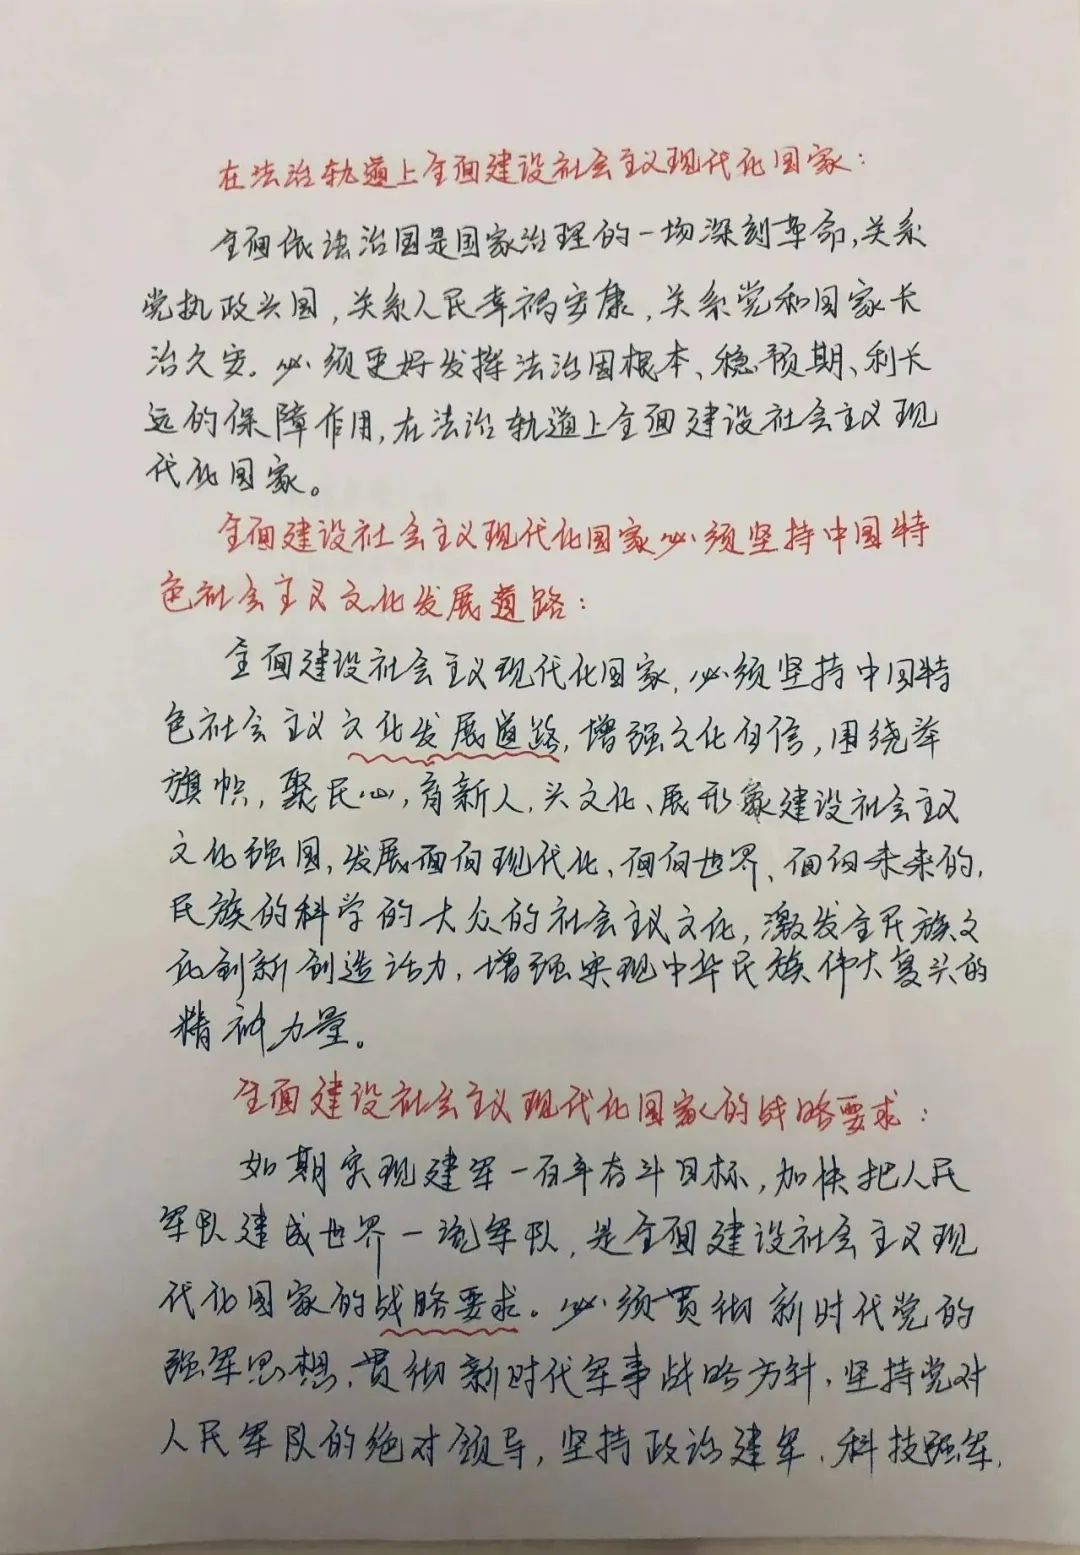 在法治轨道上全面建设社会主义现代化国家：
全面依法治国是国家治理的一场深刻革命,关系
党执政兴国,关系人民幸福安康,关系党和国家长
治久安。必须更好发挥法治固根本、稳预期、利长
远的保障作用,在法治轨道上全面建设社会主义现
代化国家。
全面建设社会主义现代化国家必须坚持中国特
色社会主义文化发展道路：
全面建设社会主义现代化国家,必须坚持中国特
色社会主义文化发展道路,增强文化自信,围绕举
旗帜,聚民心,育新人,兴文化、展形象建设社会主义
文化强国,发展面向现代化、面向世界、面向未来的,
民族的科学的大众的社会主义文化,激发全民族文
化创新创造活力,增强实现中华民族伟大复兴的
精神力量。
全面建设社会主义现代化国家的战略要求：
如期实现建军一百年奋斗目标,加快把人民
军队建成世界一流军队,是全面建设社会主义现
代化国家的战略要求。必须贯彻新时代党的
强军思想,贯彻新时代军事战略方针,坚持党对
人民军队的绝对领导,坚持政治建军、科技强军,